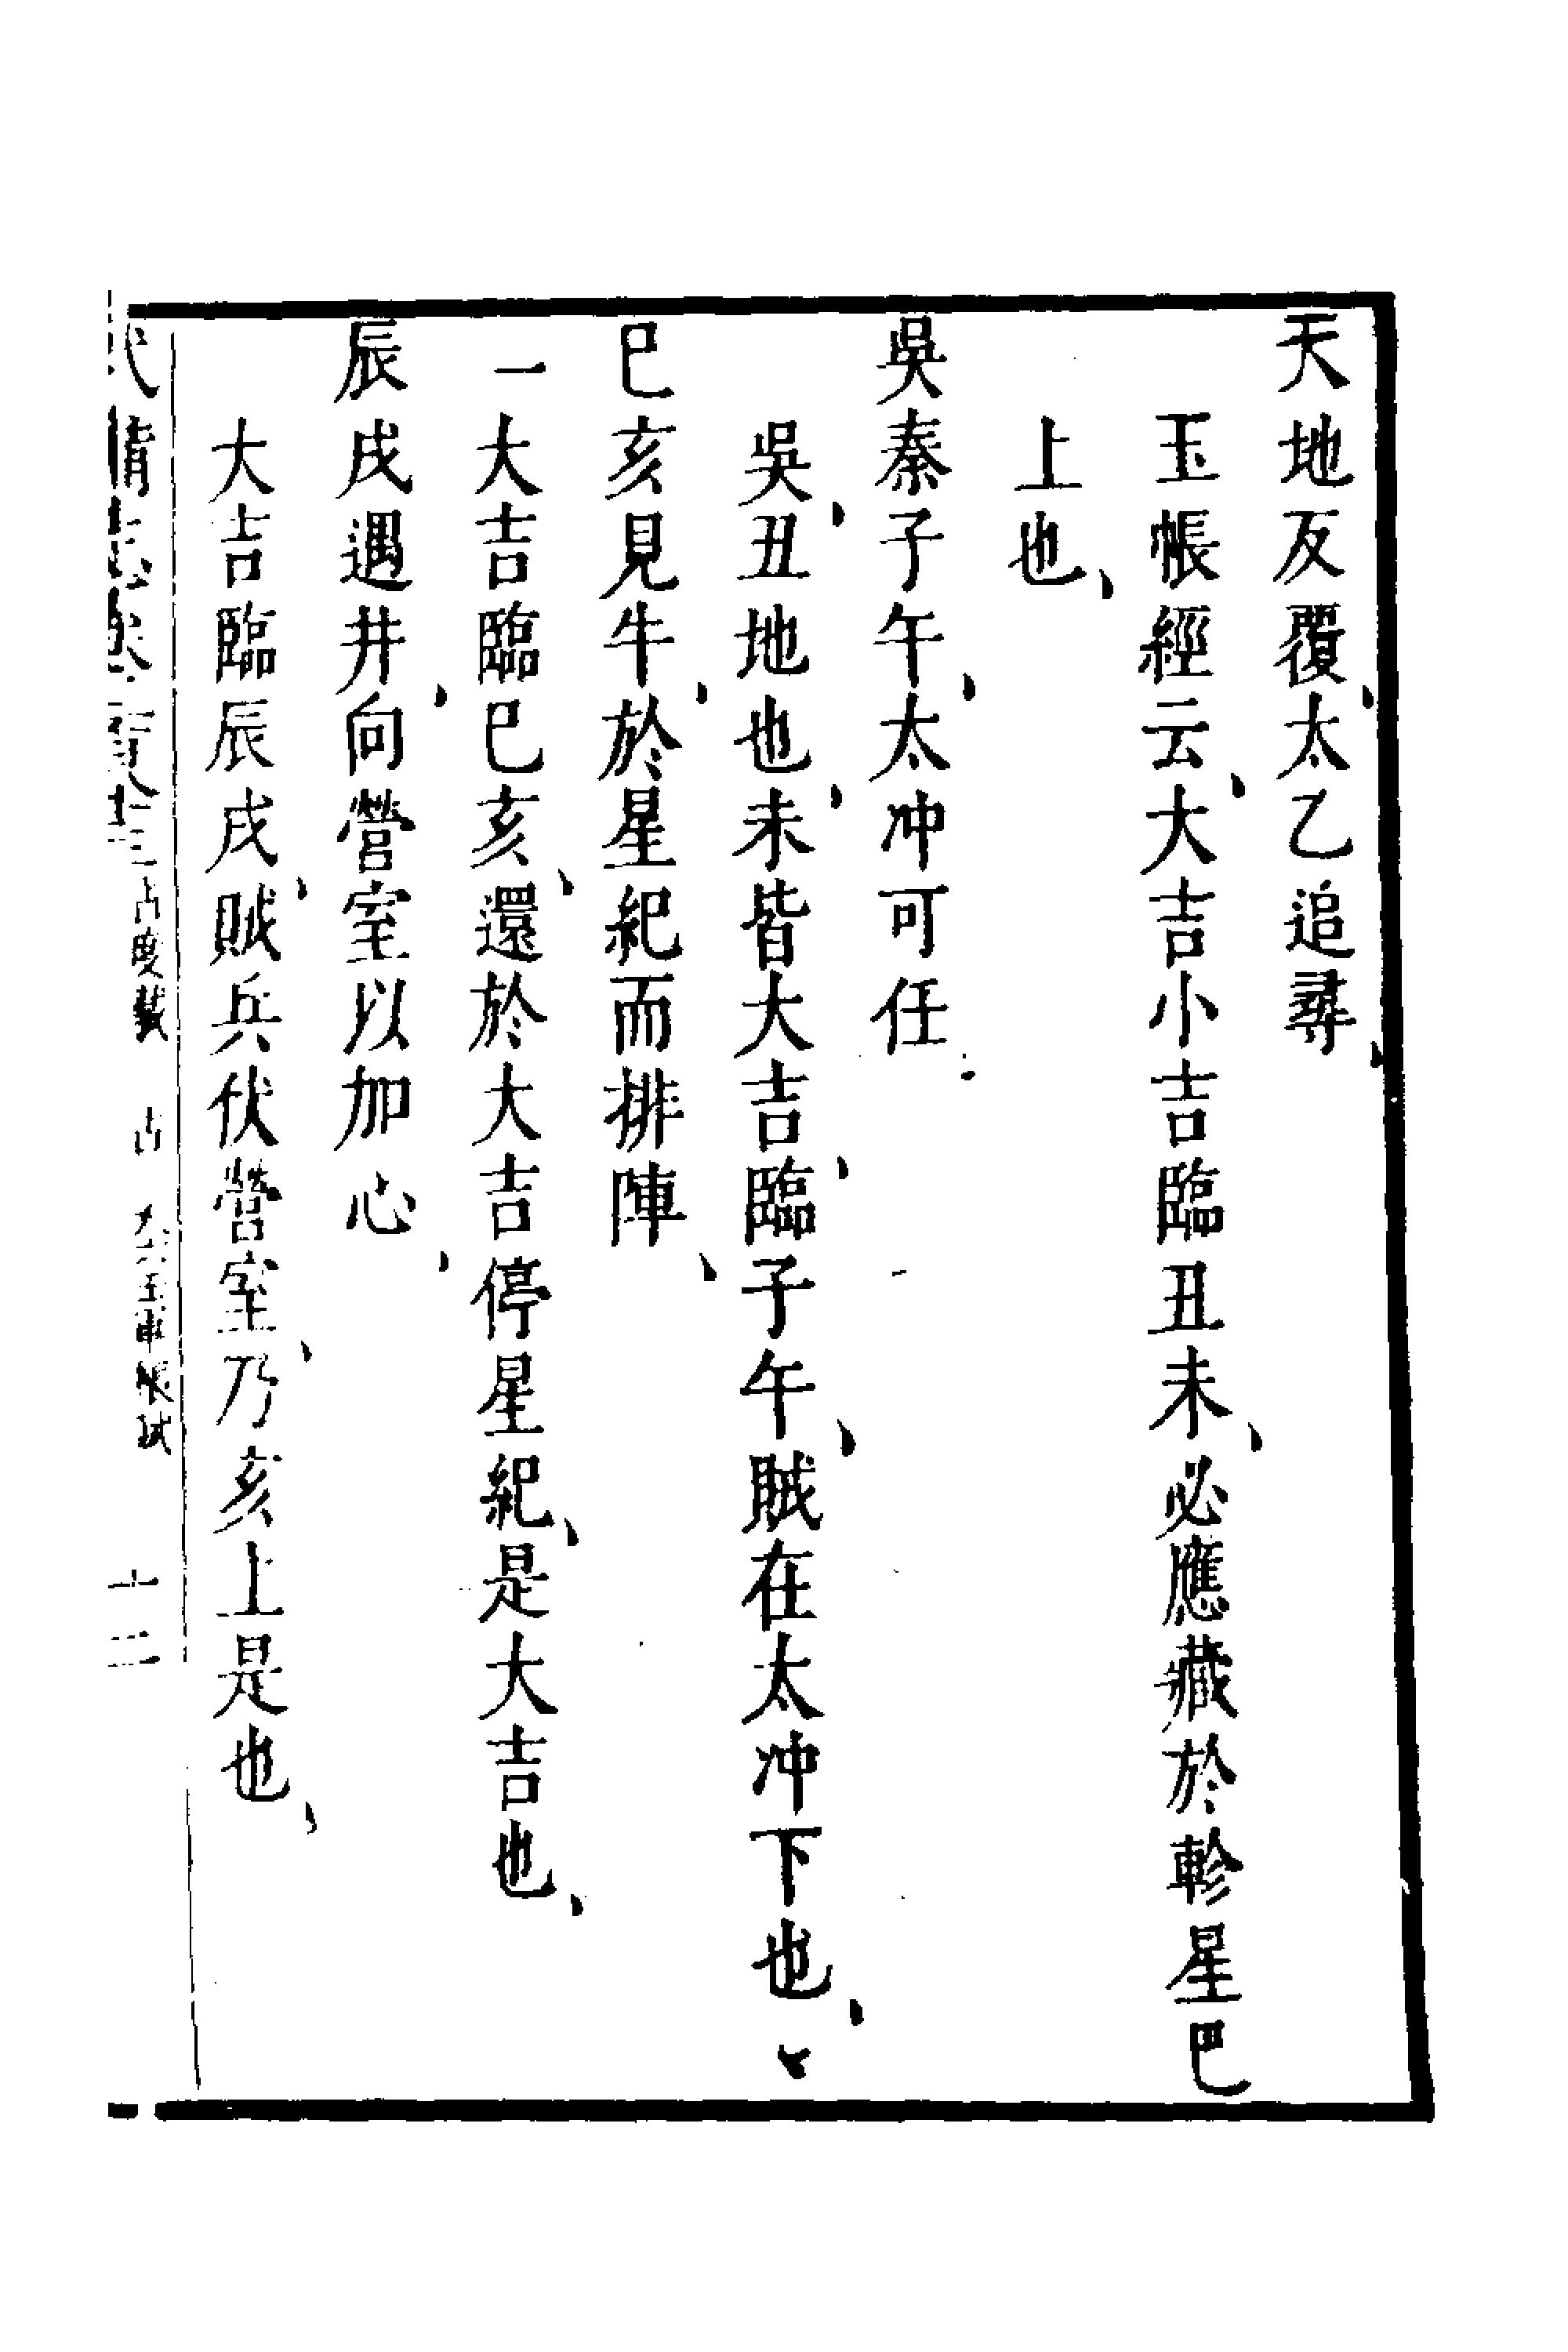 天地反覆、太乙追尋、
玉帳經云、大吉小吉臨丑未、必應藏於軫星巳
上也、
吳秦子午、太冲可任
吳、丑地也、未皆大吉、臨子午、賊在太冲下也、
巳亥見牛、於星紀而排陣、
一大吉臨巳亥、還於大吉停星紀、是大吉也、
辰戌遇井、向營室以加心、
大吉臨辰戌、賊兵伏營室、乃亥上是也、
占度載 占 六壬軍帳賦 十二